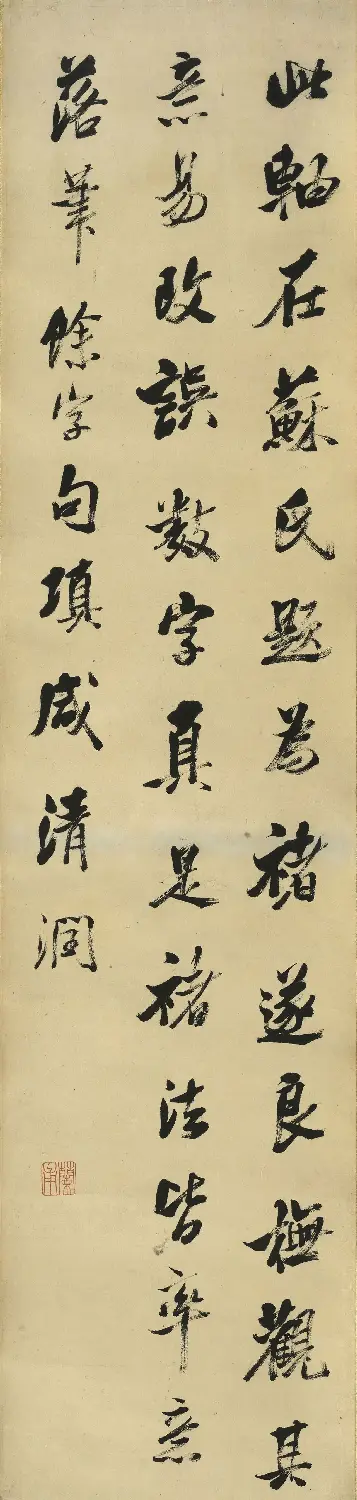 此軸在蘇氏題為褚遂良橅觀其
意易改誤數字真是褚法皆率意
落筆餘字句填咸清潤